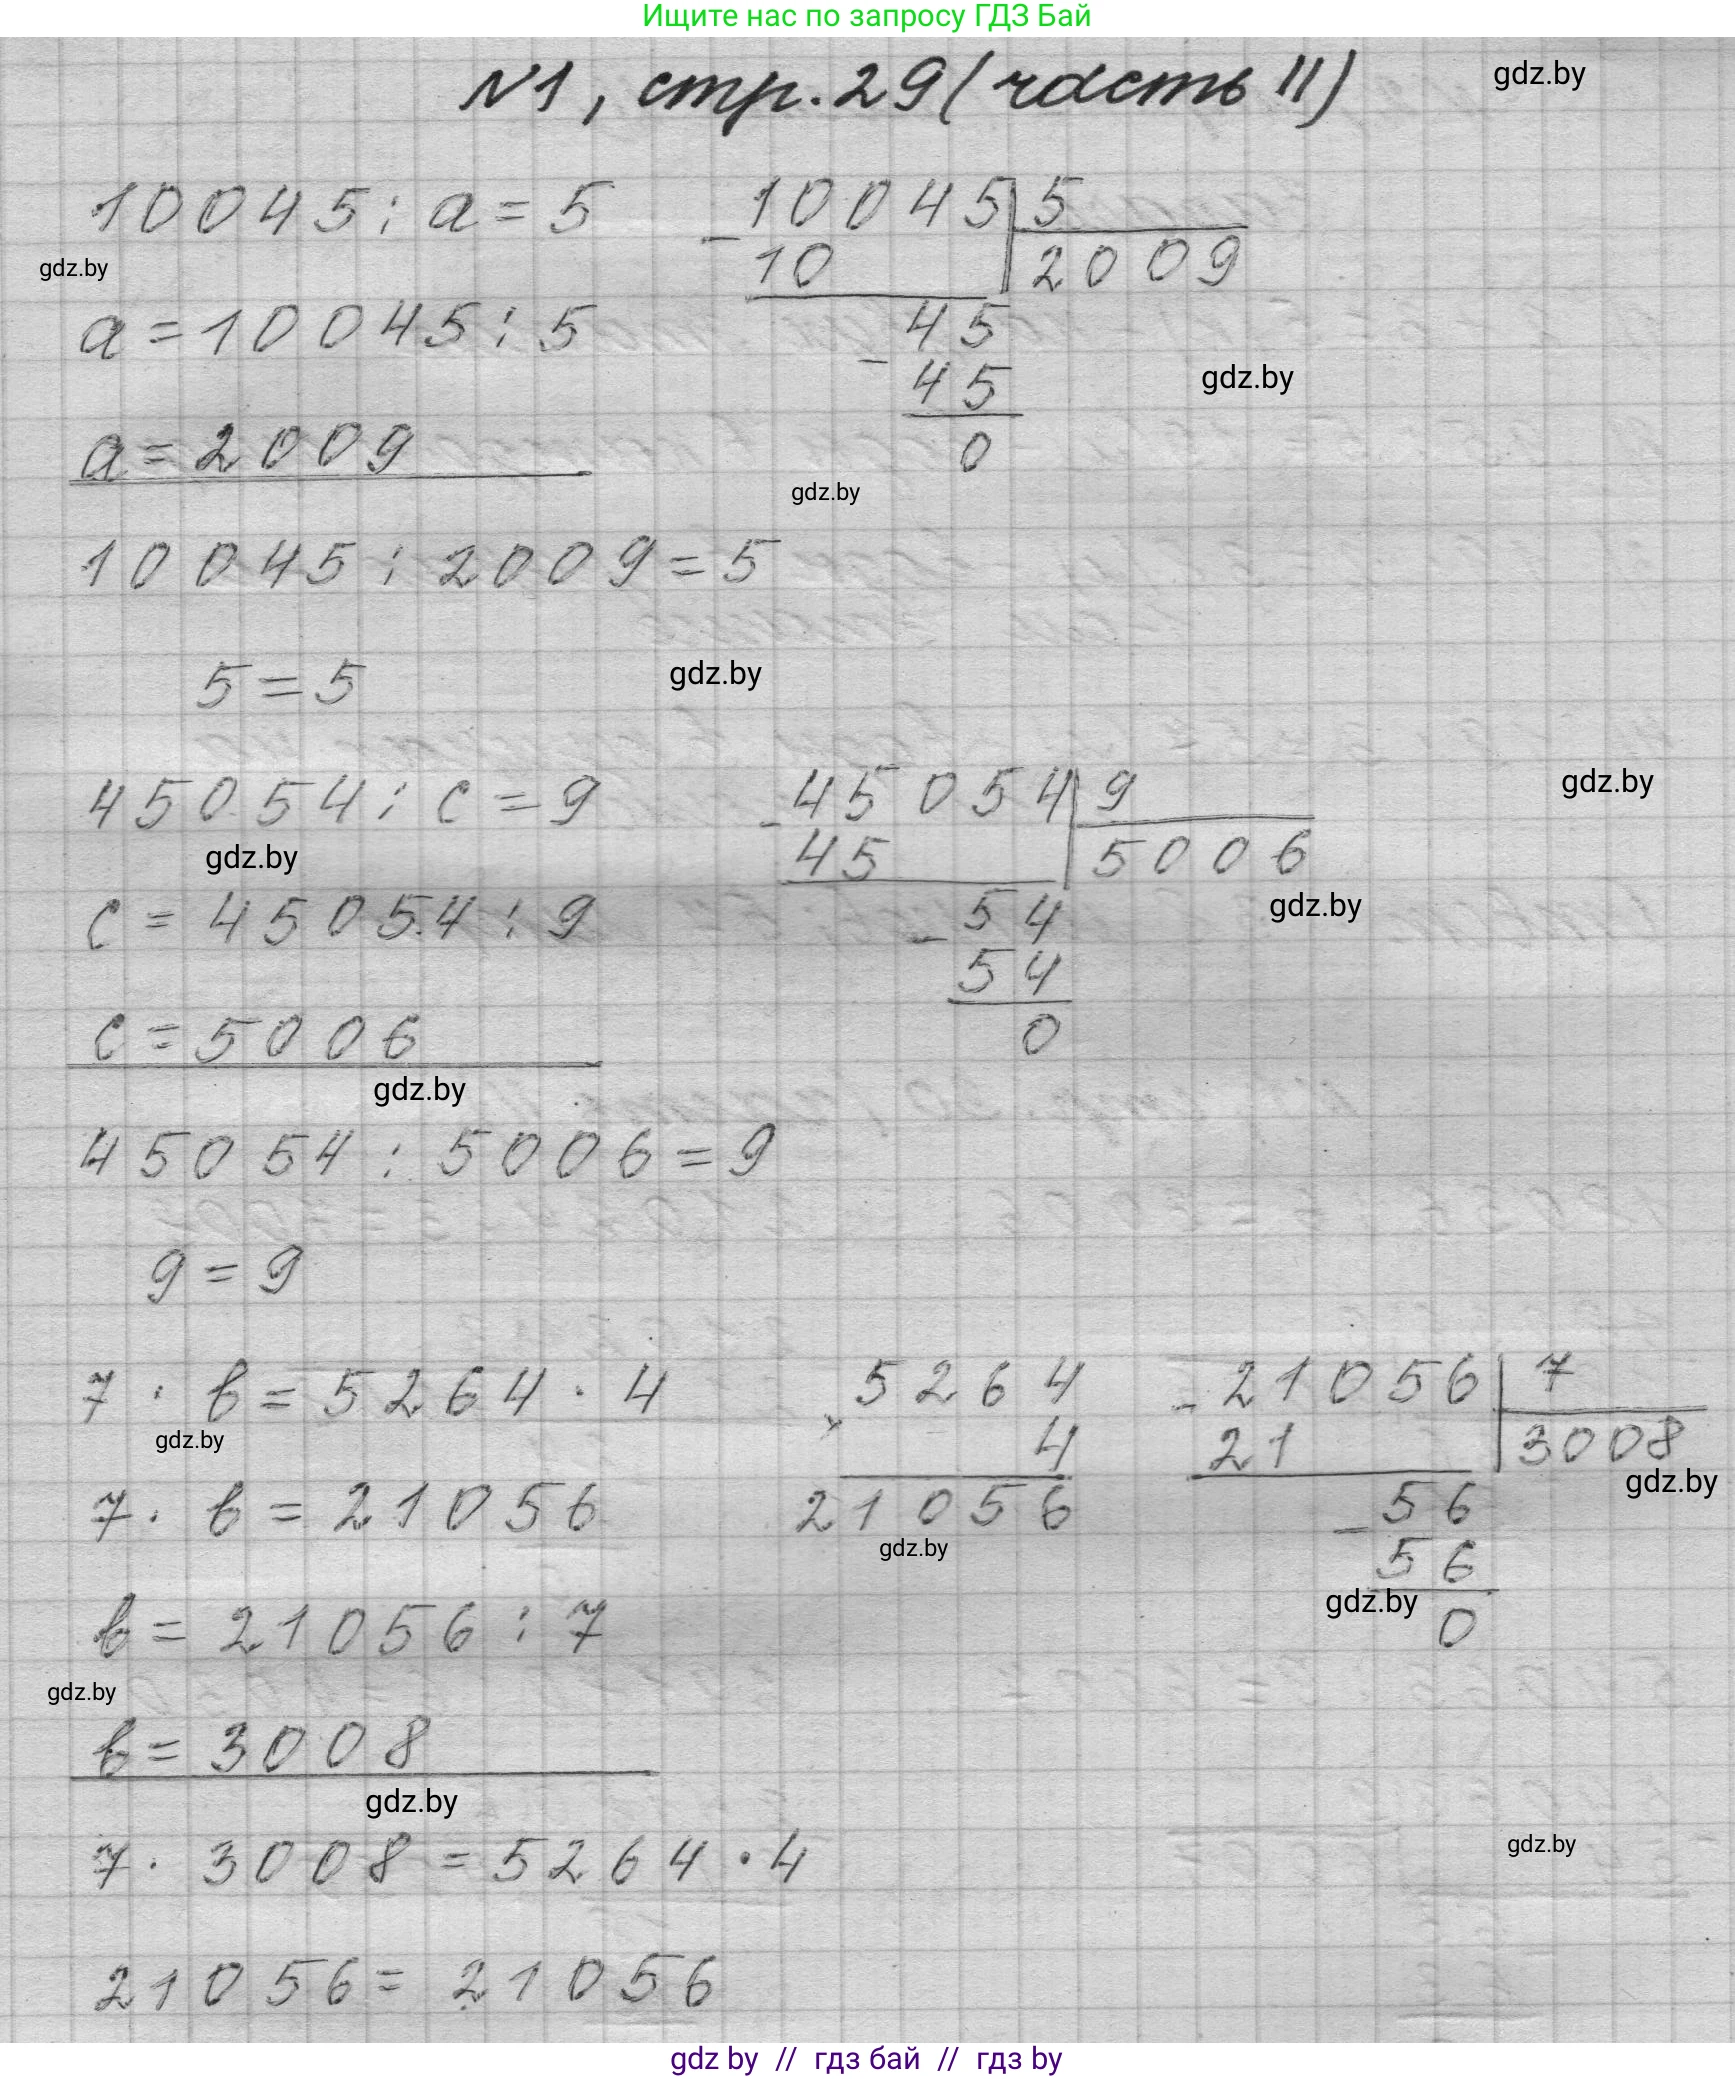 Ищите нас по запросу ГДЗ Бай
№1, стр. 29 (часть II)
gdz.by
10045 : a = 5
10045 | 5
- 10 | 2009
gdz.by
a = 10045 : 5
45
- 45
gdz.by
a = 2009
0
gdz.by
10045 : 2009 = 5
5 = 5
gdz.by
45054 : c = 9
45054 | 9
gdz.by
- 45 | 5006
gdz.by
c = 45054 : 9
54
gdz.by
- 54
c = 5006
0
gdz.by
45054 : 5006 = 9
9 = 9
7 · b = 5264 · 4
5264
× 4
21056
21056 | 7
- 21 | 3008
gdz.by
gdz.by
7 · b = 21056
56
- 56
gdz.by
gdz.by
0
b = 21056 : 7
gdz.by
b = 3008
gdz.by
7 · 3008 = 5264 · 4
gdz.by
21056 = 21056
gdz by // гдз бай // гдз by